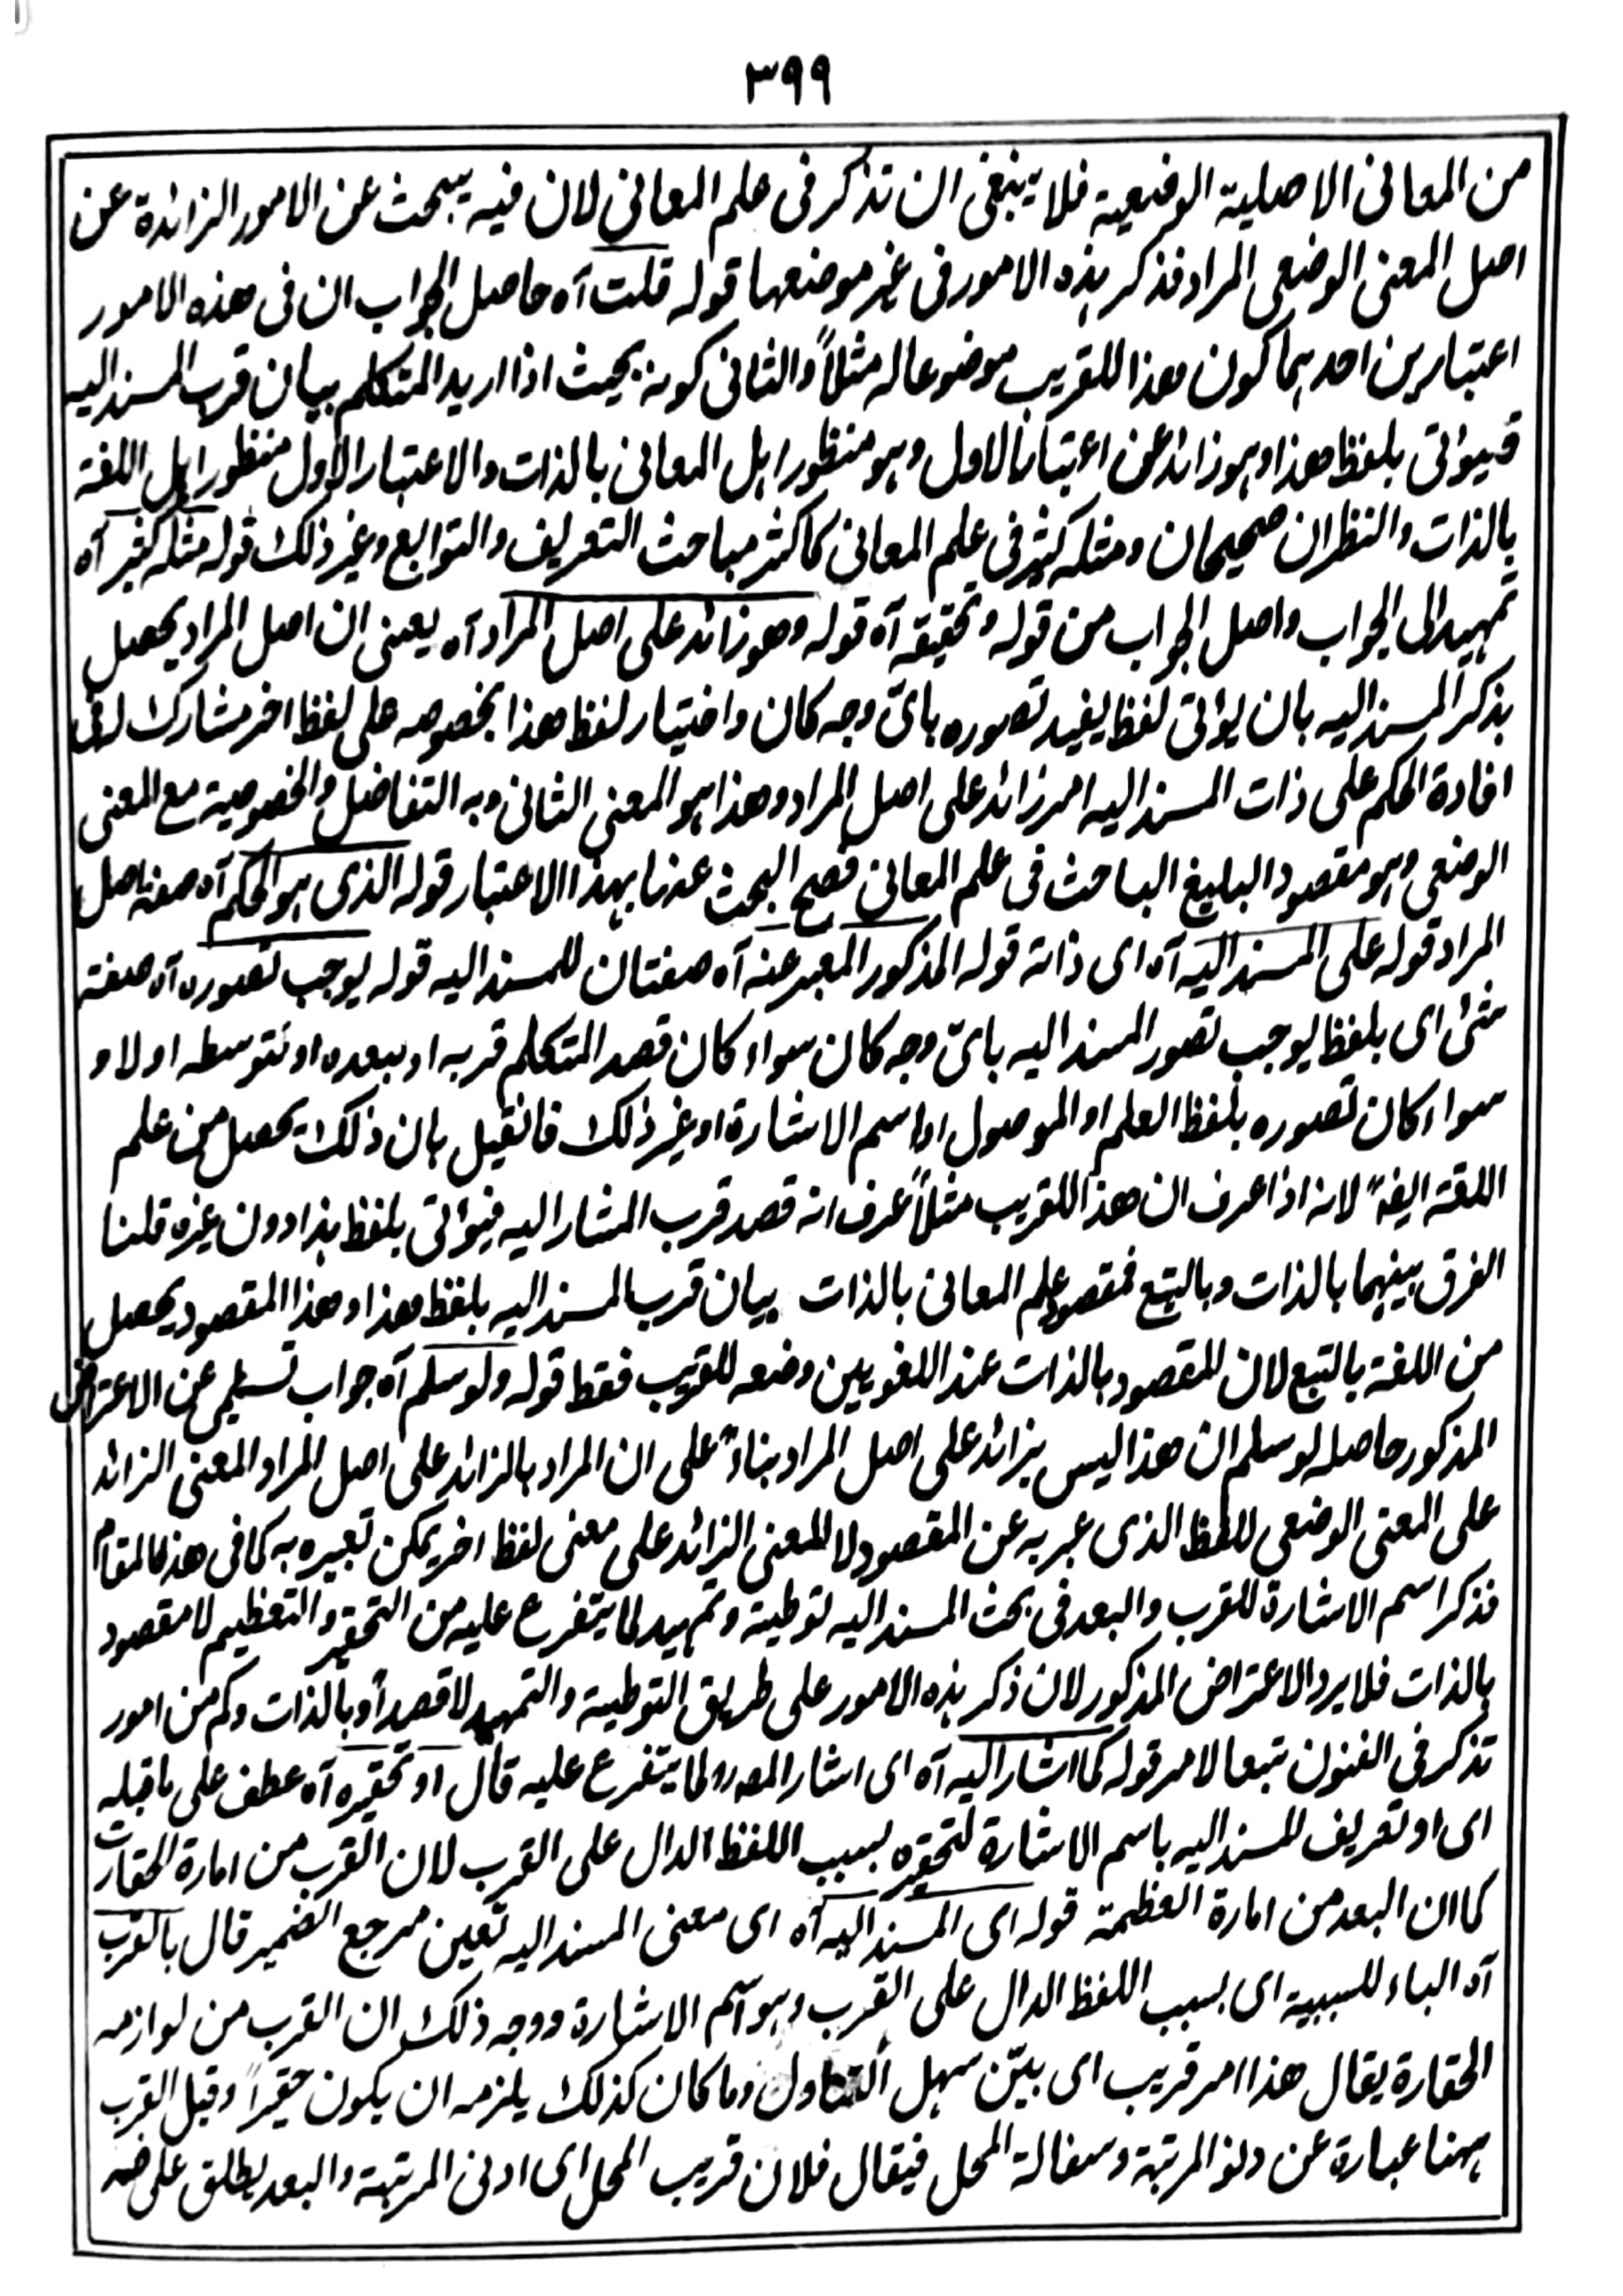 ٣٩٩
من المعانى الاصلية الوضعية فلا ينبغى ان تذكر فى علم المعانى لان فيه يبحث عن الامور الزائدة عن
اصل المعنى الوضعى المراد فذكر هذه الامور فى غير موضعها قوله قلت آه حاصل الجواب ان فى هذه الامور
اعتبارين احدهما كون هذا للقريب موضوعا له مثلاً والثانى كونه بحيث اذا اريد المتكلم بيان قرب المسند اليه
فيؤتى بلفظ هذا وهو زائد عن اعتبار الاول وهو منظور اهل المعانى بالذات والاعتبار الاول منظور اهل اللغة
بالذات والنظران صحيحان ومثله كثير فى علم المعانى كاكثر مباحث التعريف والتوابع وغير ذلك قوله مثله كثير آه
تمهيد الى الجواب واصل الجواب من قوله وتحقيقه آه قوله وهو زائد على اصل المراد آه يعنى ان اصل المراد يحصل
بذكر المسند اليه بان يؤتى لفظ يفيد تصوره باىّ وجه كان واختيار لفظ هذا بخصوصه على لفظ اخر مشارك له فى
افادة الحكم على ذات المسند اليه امر زائد على اصل المراد وهذا هو المعنى الثانى وبه التفاضل والخصوصية مع المعنى
الوضعى وهو مقصود البليغ الباحث فى علم المعانى فصح البحث عنها بهذا الاعتبار قوله الذى هو الحكم آه صفة اصل
المراد قوله على المسند اليه آه اى ذاته قوله المذكور المعبر عنه آه صفتان للمسند اليه قوله يوجب تصوره آه صفة
شئ اى بلفظ يوجب تصور المسند اليه باىّ وجه كان سواء كان قصد المتكلم قربه او ببعده او بتوسطه اولا و
سواء كان تصوره بلفظ العلم او الموصول او اسم الاشارة او غير ذلك فان قيل بان ذلك يحصل من علم
اللغة ايضاً لانه اذا عرف ان هذا للقريب مثلاً عرف انه قصد قرب المشار اليه فيؤتى بلفظ هذا دون غيره قلنا
الفرق بينهما بالذات وبالتبع فمقصود علم المعانى بالذات بيان قرب المسند اليه بلفظ هذا وهذا المقصود يحصل
من اللغة بالتبع لان المقصود بالذات عند اللغويين وضعه للقريب فقط قوله ولو سلم آه جواب تسليمى عن الاعتراض
المذكور حاصله لو سلم ان هذا ليس بزائد على اصل المراد بناءً على ان المراد بالزائد على اصل المراد المعنى الزائد
على المعنى الوضعى للفظ الذى عبر به عن المقصود لا المعنى الزائد على معنى لفظ اخر يمكن تعبيره به كما فى هذا المقام
فذكر اسم الاشارة للقرب والبعد فى بحث المسند اليه توطية وتمهيد لما يتفرع عليه من التحقير والتعظيم لا مقصود
بالذات فلا يرد الاعتراض المذكور لان ذكر هذه الامور على طريق التوطية والتمهيد لا قصداً وبالذات وكم من امور
تذكر فى الفنون تبعا لامر قوله كما اشار اليه آه اى اشار المصر لما يتفرع عليه قال او تحقيره آه عطف على ما قبله
اى او تعريف المسند اليه باسم الاشارة لتحقيره بسبب اللفظ الدال على القرب لان القرب من امارة الحقارت
كما ان البعد من امارة العظمة قوله اى المسند اليه آه اى معنى المسند اليه تعين مرجع الضمير قال بالقرب
آه الباء للسببية اى بسبب اللفظ الدال على القرب وهو اسم الاشارة ووجه ذلك ان القرب من لوازمه
الحقارة يقال هذا امر قريب اى بيّن سهل التناول وما كان كذلك يلزمه ان يكون حقيراً وقيل القرب
ههنا عبارة عن دنو المرتبة وسفالة المحل فيقال فلان قريب المحل اى ادنى المرتبة والبعد يطلق على ضد